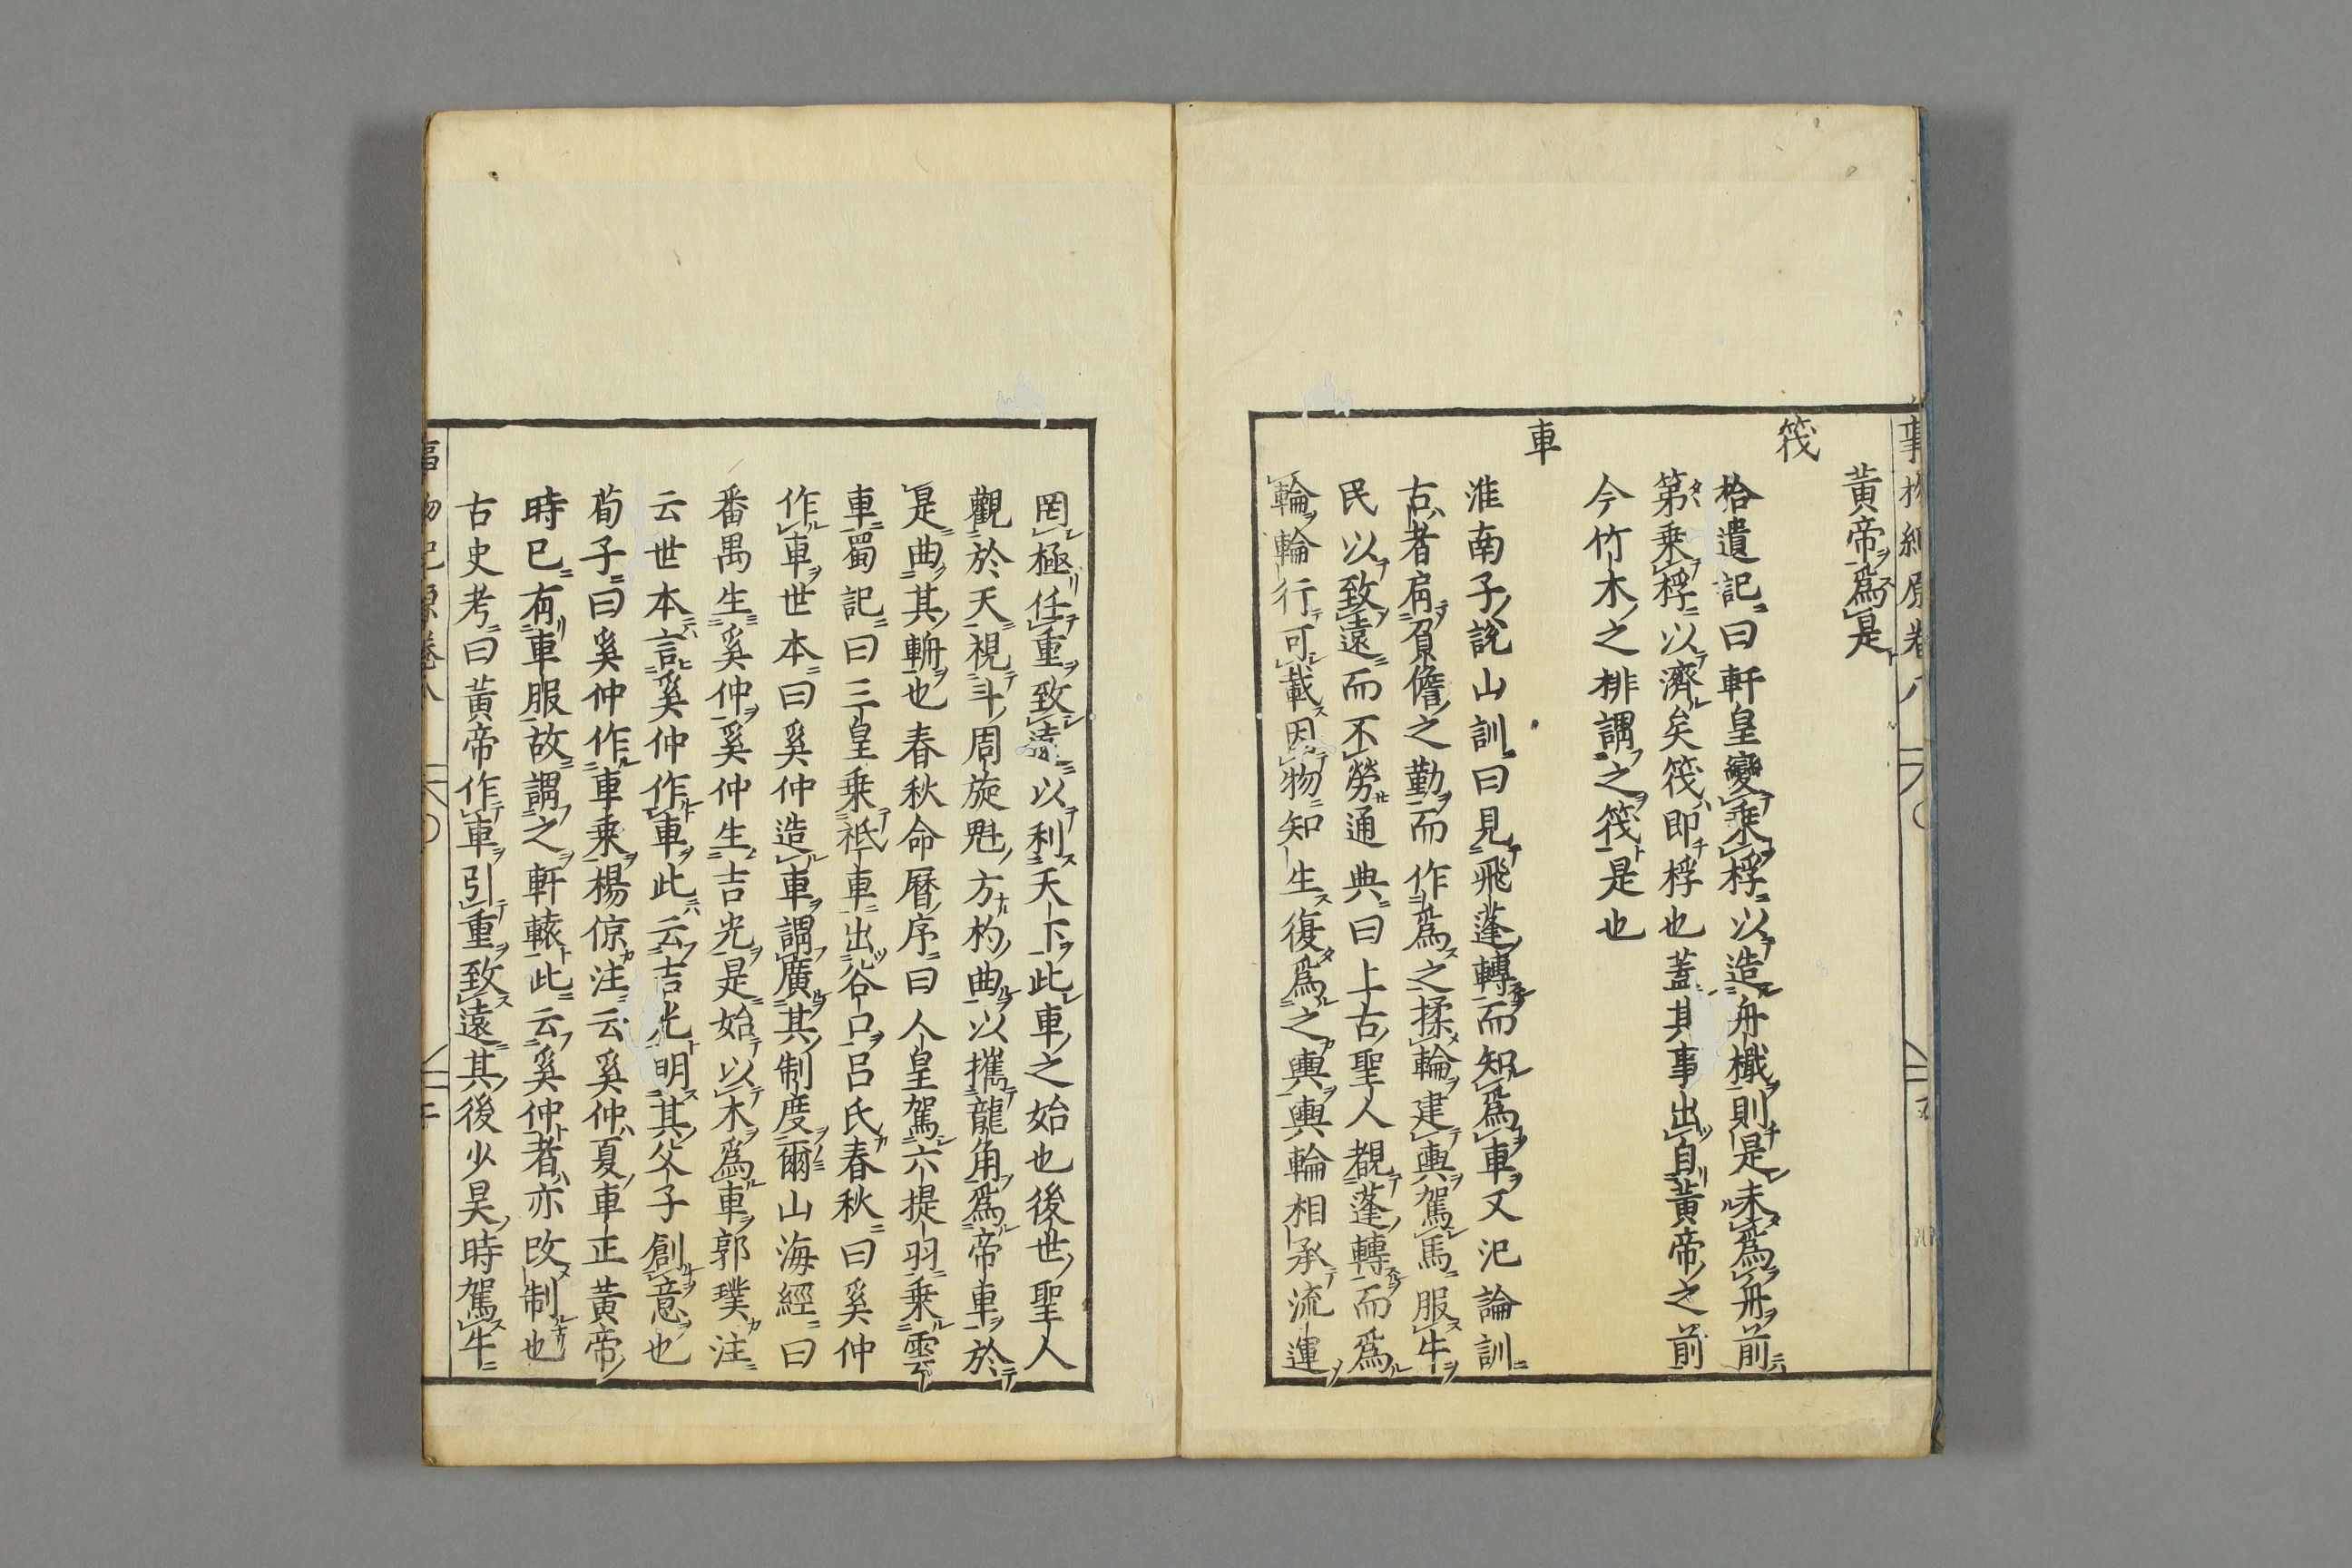 黃帝爲是
筏
拾遺記曰軒皇變乘桴以造舟檝則是未爲舟前
第乗桴以濟矣筏即桴也蓋其事出自黃帝之前
今竹木之排謂之筏是也
車
淮南子說山訓曰見飛蓬轉而知爲車又氾論訓
古者肩負儋之勤而作爲之揉輪建輿駕馬服牛
民以致遠而不勞通典曰上古聖人覩蓬轉而爲
輪輪行可載因物知生復爲之輿輿輪相承流運
罔極任重致遠以利天下此車之始也後世聖人
觀於天視斗周旋魁方杓曲以攜龍角爲帝車於
是曲其輈也春秋命曆序曰人皇駕六提羽乗雲
車蜀記曰三皇乗祗車出谷口呂氏春秋曰奚仲
作車世本曰奚仲造車謂廣其制度爾山海經曰
番禺生奚仲奚仲生吉光是始以木爲車郭璞注
云世本言奚仲作車此云吉光明其父子創意也
荀子曰奚仲作車乗楊倞注云奚仲夏車正黃帝
時已有車服故謂之軒轅此云奚仲者亦改制也
古史考曰黃帝作車引重致遠其後少昊時駕牛